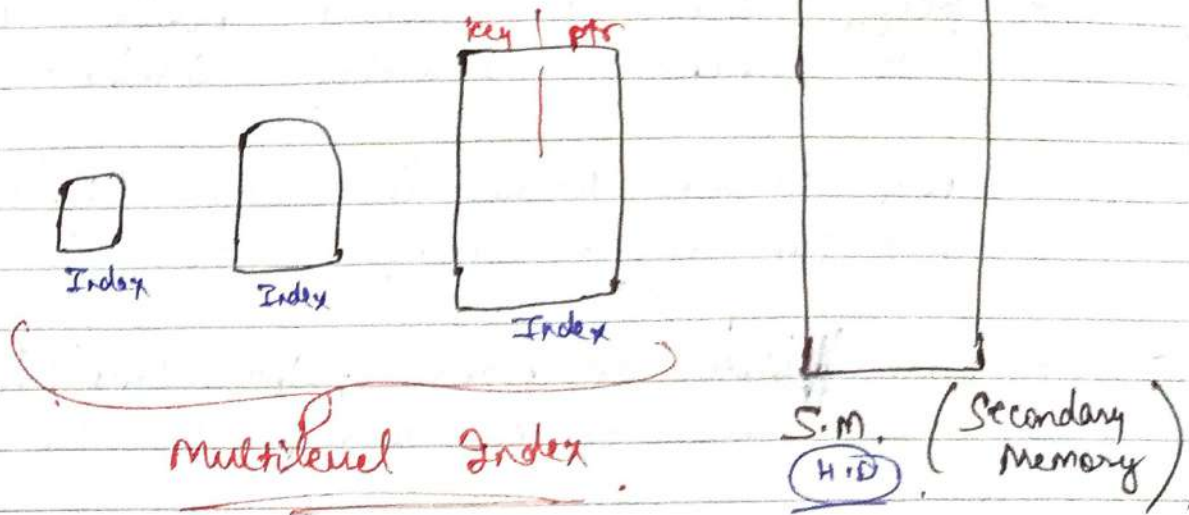 key | ptr
Index
Index
Index
Multilevel Index.
S.M. (Secondary Memory)
H.D.